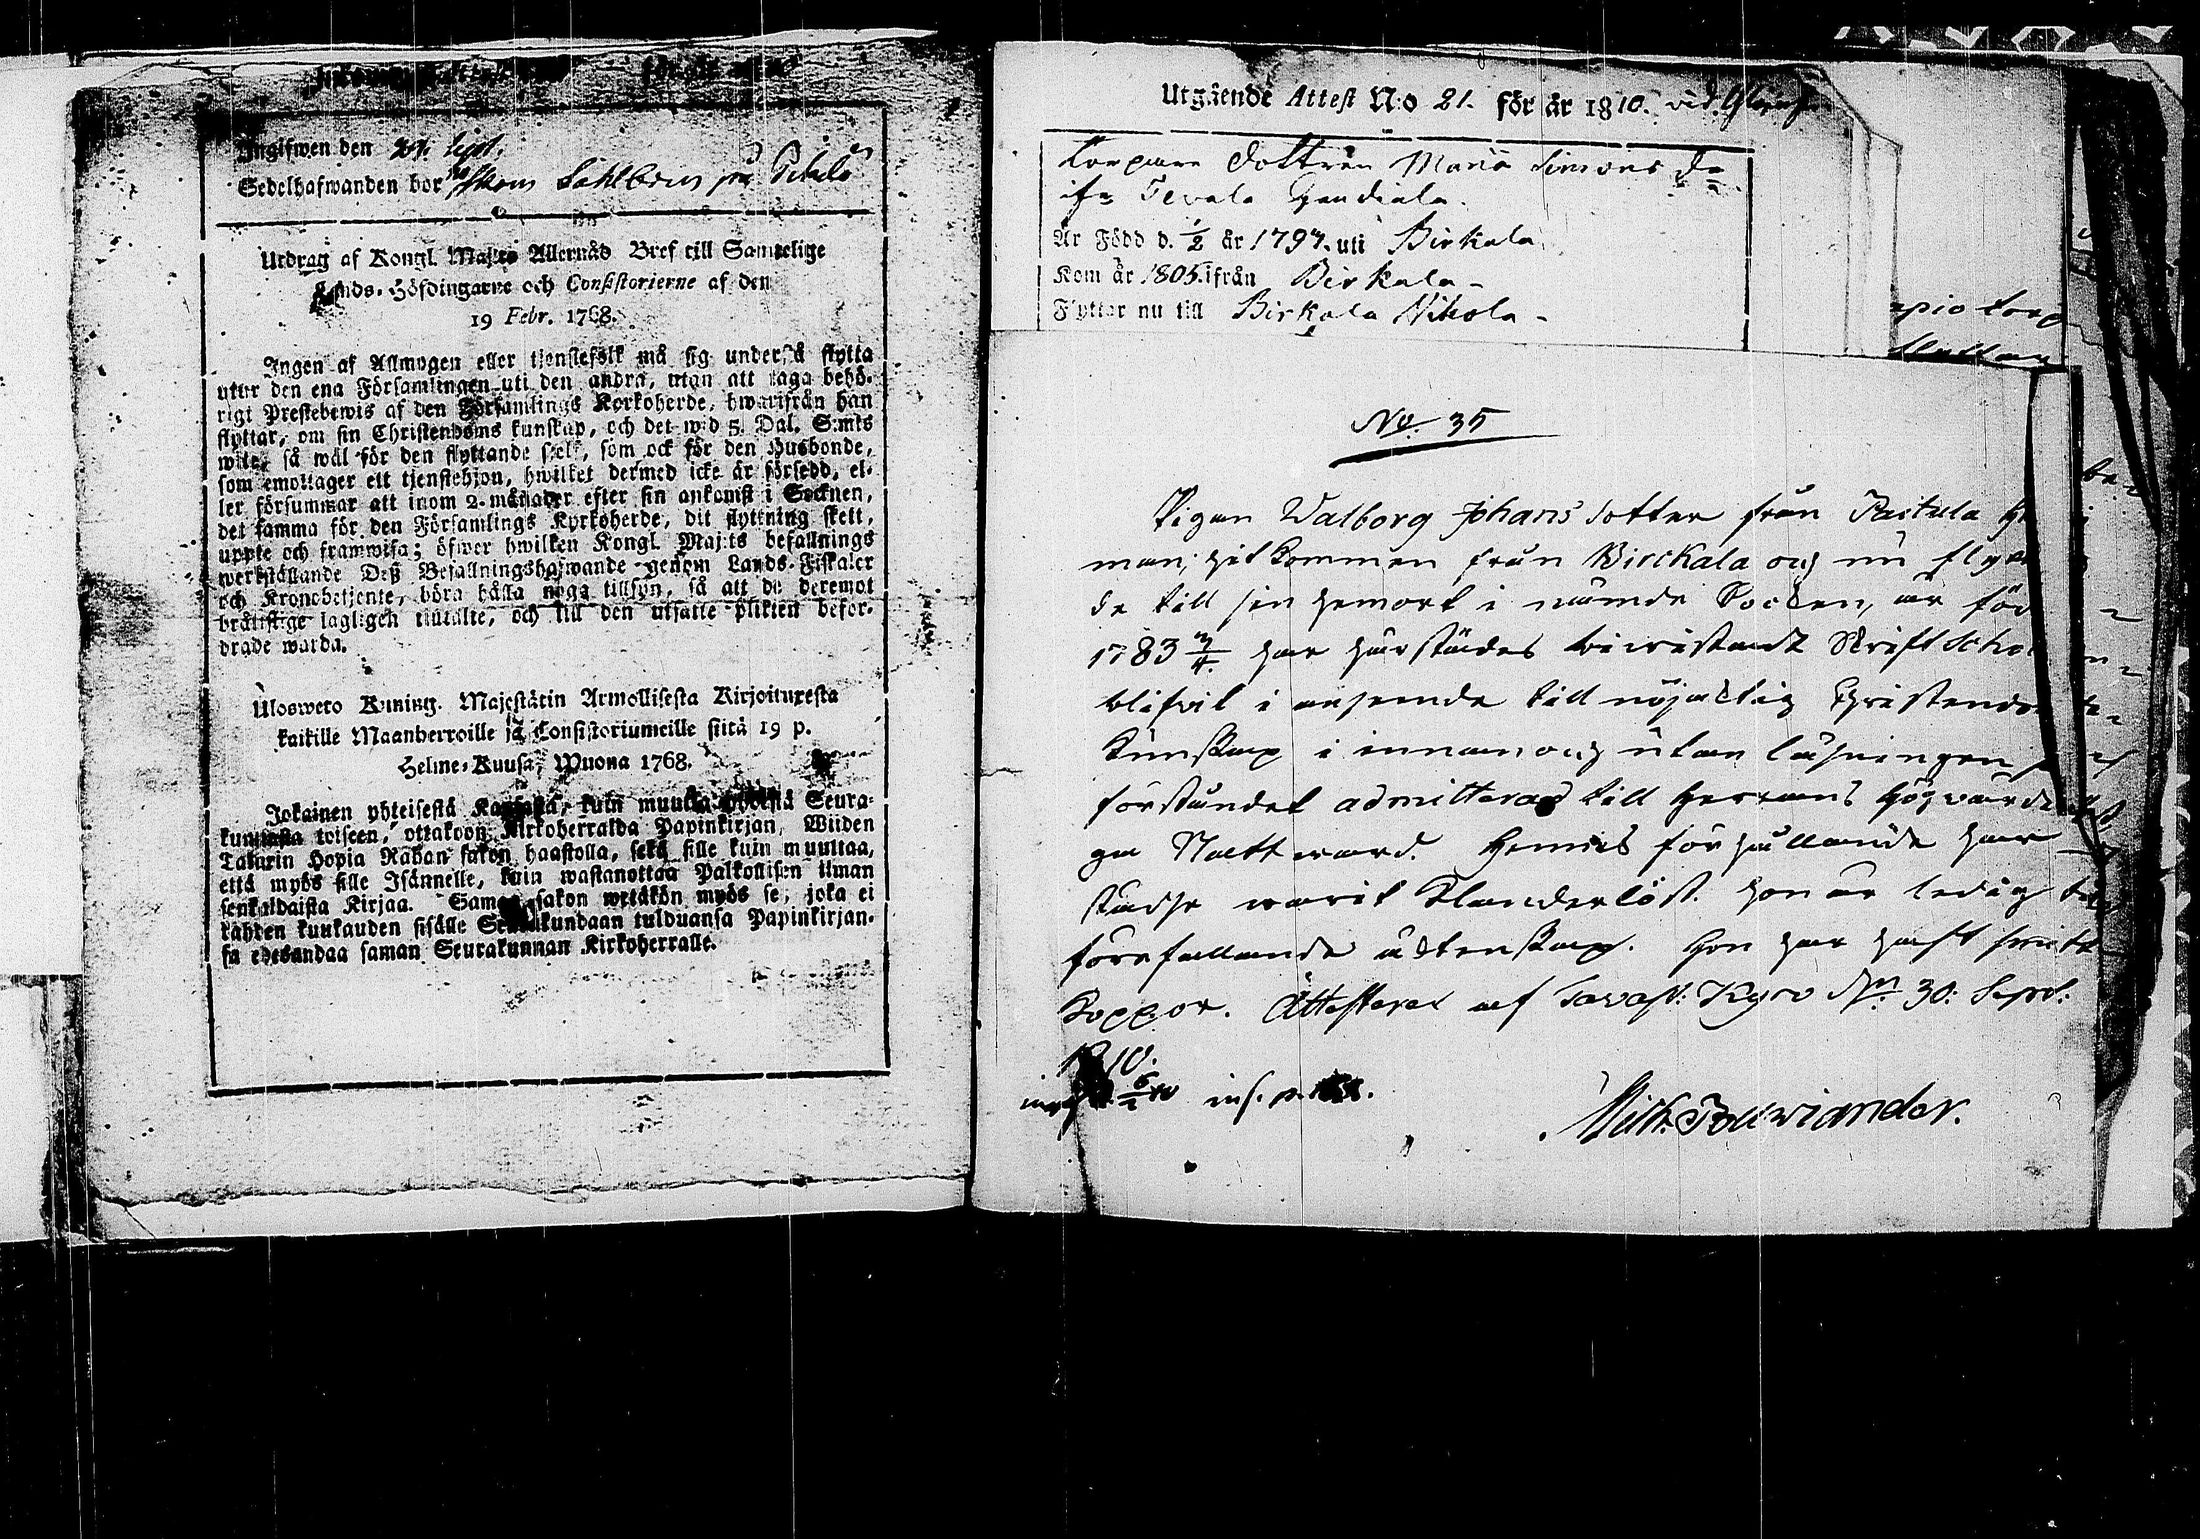 Ingifwen den
Sedelhafwanden bor
Utdrag af Kongl. Maj:ts Allernåd Bref till Samtelige
Lands-Höfdingarne och Consistorierne af den
19 Febr. 1768.
Ingen af Allmogen eller tjenstefolk må sig understå flytta
utur den ena Församlingen uti den andra, utan att taga behö-
rigt Prestebewis af den Församlings Kyrkoherde, hwarifrån han
flyttar, om sin Christendoms kunskap, och det wid 5. Dal. S:mts
wite, så wäl för den flyttande sjelf, som ock för den Husbonde,
som emottager ett tjenstehjon, hwilket dermed icke är försedd, el-
ler försummar att inom 2. månader efter sin ankomst i Socknen,
det samma för den Församlings Kyrkoherde, dit flyttning skett,
uppte och framwisa; öfwer hwilken Kongl. Maj:ts befallnings
werkställande Deß Befallningshafwande genom Lands-Fiskaler
och Kronobetjente, böra hålla noga tillsyn, så att de deremot
bråttslige lagligen tiltalte, och till den utsatte plikten befor-
drade warda.
Ulosweto Kuning. Majestätin Armollisesta Kirjoituxesta
kaikille Maanherroille ja Consistoriumeille siitä 19 p.
Helme-Kuusa, Wuona 1768.
Jokainen yhteisestä Kansasta, kuin muutta yhdestä Seura-
kunnasta toiseen, ottakoon Kirkoherralda Papinkirjan, Wiiden
Talarin Hopia Rahan sakon haastolla, sekä sille kuin muuttaa,
että myös sille Isännelle, kuin wastanottaa Palkollisen ilman
senkaldaista Kirjaa. Saman sakon wetäkön myös se, joka ei
kahden kuukauden sisälle Seurakundaan tulduansa Papinkirjan-
sa edesandaa saman Seurakunnan Kirkoherralle.
Utgående Attest N:o 21. för år 1810.
Torpare dottren Maria Simons dr
ifr Tevala
Är Född d. 1/2 år 1797. uti Birkala
Kom år 1805. ifrån Birkala
Flyttar nu till Birkala Nikola
No. 35
Pigan Walborg Johans dotter från Pastula
man, hitkommen från Birckala och nu
de till sin hemort i nämde Socken, är föd
1783 3/4. har härstädes biwistadt Skriftschol
blifvit i anseende till nöjacktig Christendo
kunskap i innan och utan läsningen
förståndet admitterad till Herrans Högwärdi
ga Nattward. Hennes förhållande har
städse warit klanderlöst. Hon är ledig
förefallande äcktenskap. Hon har haft
koppor. Attesterat af Tavast: Kyro d. 30: Sept:
1810.